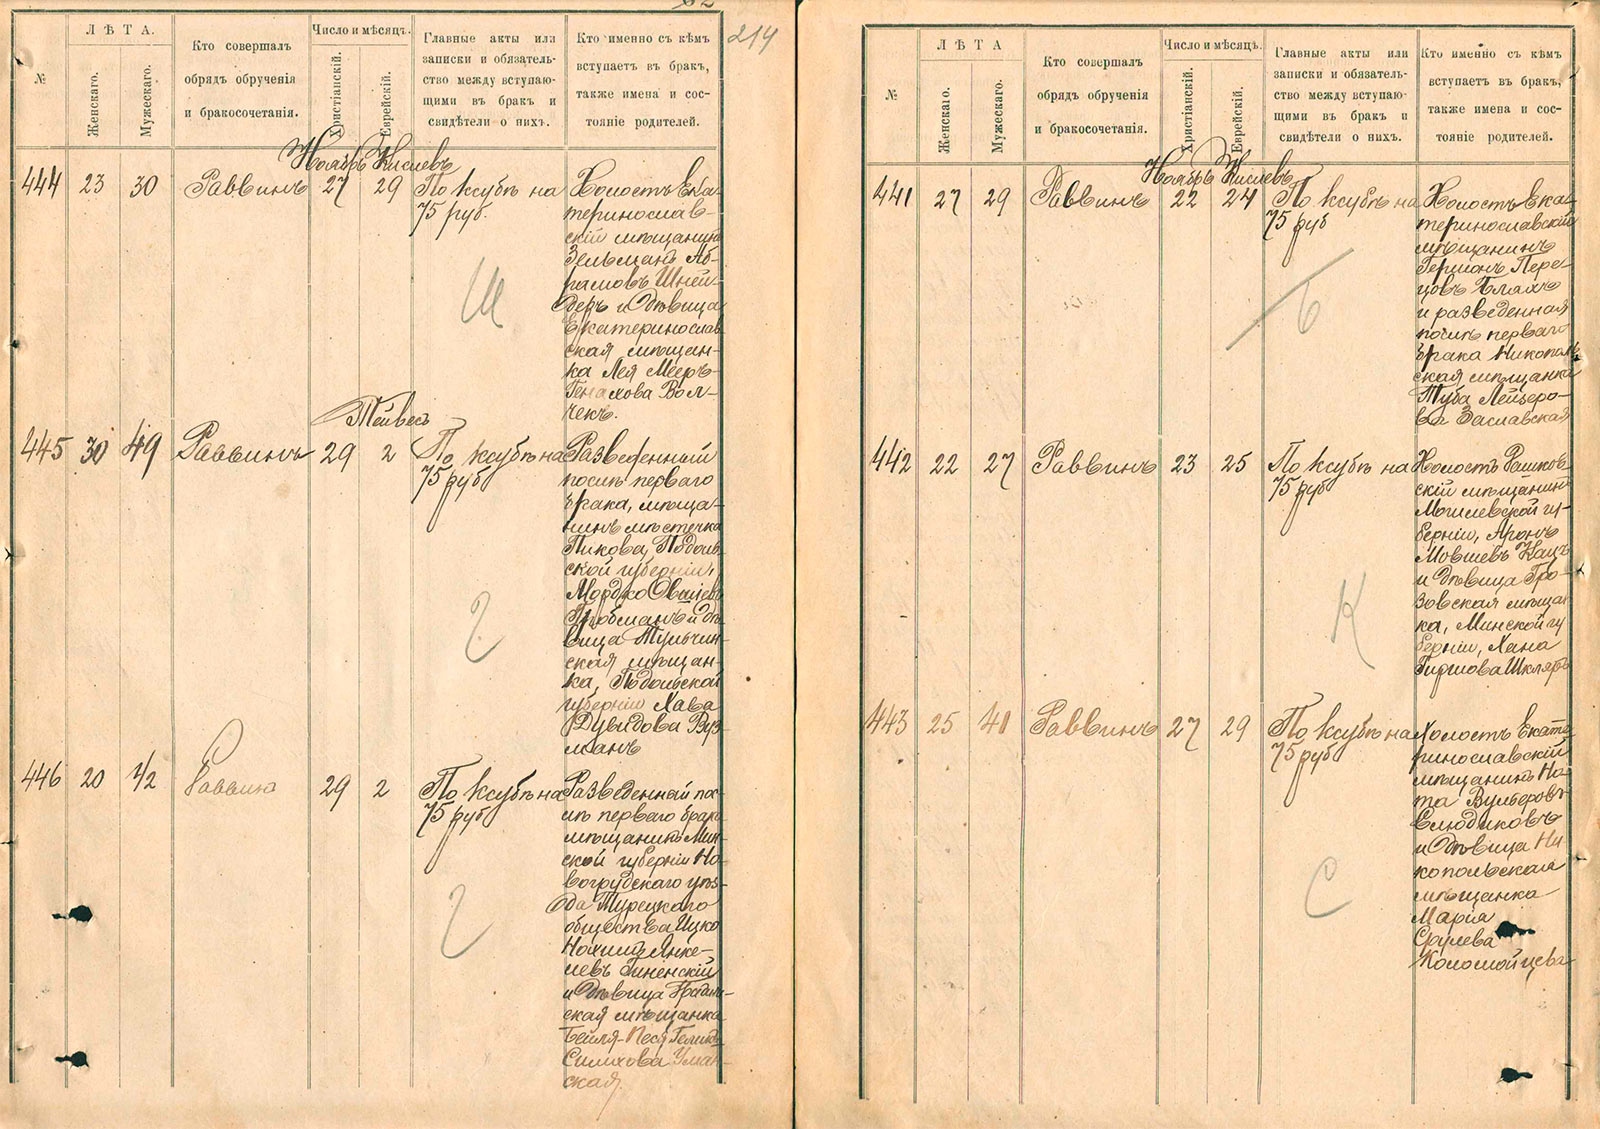 214
№
ЛѢТА.
Женскаго.
Мужескаго.
Кто совершалъ
обрядъ обрученія
и бракосочетанія.
Число и мѣсяцъ.
Христіанскій.
Еврейскій.
Главные акты или
записки и обязатель-
ство между вступаю-
щими въ бракъ и
свидѣтели о нихъ.
Кто именно съ кѣмъ
вступаетъ въ бракъ,
также имена и сос-
тояніе родителей.
Ноябрь Кислевъ
444 23 30 Раввинъ 27 29 По ксубѣ на
75 руб.
Холостъ Ека-
теринослав-
скій мѣщанинъ
Зельманъ Аб-
рамовъ Шней-
деръ и дѣвица
Екатеринослав
ская мѣщан-
ка Лея Мееръ-
Генахова Вол-
чекъ.
Ш
Тейвесъ
445 30 49 Раввинъ 29 2 По ксубѣ на
75 руб
Разведенный
послѣ перваго
брака, мѣща-
нинъ мѣстечка
Пикова, Подоль
ской губерніи,
Мордко Овшіевъ
Гробманъ и дѣ
вица Тульчин-
ская мѣщан-
ка, Подольской
губерніи Хава
Дувидова Вуз-
манъ
Г
446 20 42 Раввинъ 29 2 По ксубѣ на
75 руб
Разведенный пос-
лѣ перваго брака
мѣщанинъ Мин-
ской губерніи Но-
вогрудскаго уѣз-
да Турецкаго
общества Ицко
Нохимъ Янке-
левъ Гиненскій
и дѣвица Градиж-
ская мѣщанка
Бейля-Песя
Уман-
ская.
Г
№
ЛѢТА
Женскаго.
Мужескаго.
Кто совершалъ
обрядъ обрученія
и бракосочетанія.
Число и мѣсяцъ.
Христіанскій.
Еврейскій.
Главные акты или
записки и обязатель-
ство между вступаю-
щими въ бракъ и
свидѣтели о нихъ.
Кто именно съ кѣмъ
вступаетъ въ бракъ,
также имена и сос-
тояніе родителей.
Ноябрь Кислевъ
441 27 29 Раввинъ 22 24 По ксубѣ на
75 руб
Холостъ Ека-
теринославскій
мѣщанинъ
Гершонъ Пере-
цовъ Блахъ
и разведенная
послѣ перваго
брака Никополь
ская мѣщанка
Туба Лейзеро-
ва Заславская
Б
442 22 27 Раввинъ 23 25 По ксубѣ на
75 руб
Холостъ Рашков-
скій мѣщанинъ
Могилевской гу-
берніи, Аронъ
Мовшевъ Кацъ
и дѣвица Гро-
зовская мѣщан-
ка, Минской гу
берніи, Хана
Гиршова Шкляръ
К
443 25 41 Раввинъ 27 29 По ксубѣ на
75 руб
Холостъ Екате
ринославскій
мѣщанинъ На-
та Вульфовъ
Слюдиковъ
и дѣвица Ни-
копольская
мѣщанка
Марія
Срулева
Коломойцева
С